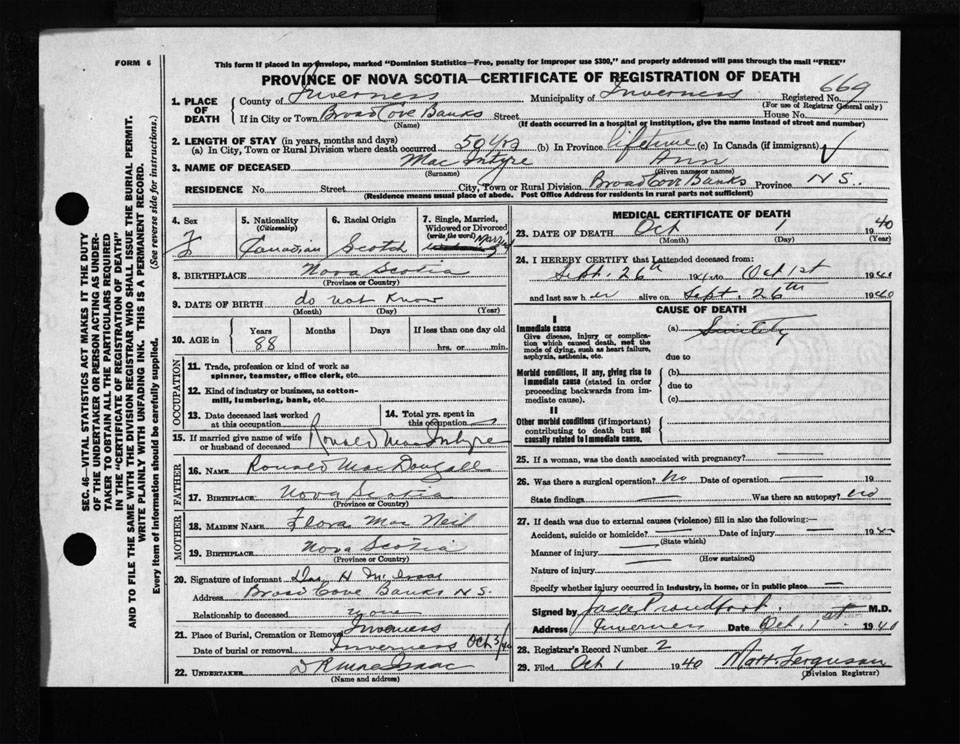 FORM 6
This form if placed in an envelope, marked "Dominion Statistics—Free, penalty for improper use $300," and properly addressed will pass through the mail "FREE"
PROVINCE OF NOVA SCOTIA—CERTIFICATE OF REGISTRATION OF DEATH
669
1. PLACE OF DEATH County of Inverness Municipality of Inverness Registered No.
(For use of Registrar General only)
If in City or Town Broad Cove Banks Street House No.
(Name) (If death occurred in a hospital or institution, give the name instead of street and number)
2. LENGTH OF STAY (in years, months and days)
(a) In City, Town or Rural Division where death occurred 50 yrs (b) In Province lifetime (c) In Canada (if immigrant)
3. NAME OF DECEASED Mac Intyre Ann
(Surname) (Given name or names)
RESIDENCE No Street City, Town or Rural Division Broad Cove Banks Province N S.
(Residence means usual place of abode. Post Office Address for residents in rural parts not sufficient)
SEC. 46—VITAL STATISTICS ACT MAKES IT THE DUTY
OF THE UNDERTAKER OR PERSON ACTING AS UNDER-
TAKER TO OBTAIN ALL THE PARTICULARS REQUIRED
IN THE "CERTIFICATE OF REGISTRATION OF DEATH"
AND TO FILE THE SAME WITH THE DIVISION REGISTRAR WHO SHALL ISSUE THE BURIAL PERMIT.
WRITE PLAINLY WITH UNFADING INK. THIS IS A PERMANENT RECORD.
Every item of information should be carefully supplied. (See reverse side for instructions.)
4. Sex F
5. Nationality (Citizenship) Canadian
6. Racial Origin Scotch
7. Single, Married, Widowed or Divorced (write the word) Married
8. BIRTHPLACE Nova Scotia
(Province or Country)
9. DATE OF BIRTH do not know
(Month) (Day) (Year)
10. AGE in Years 88 Months Days If less than one day old
hrs. or min.
OCCUPATION
11. Trade, profession or kind of work as spinner, teamster, office clerk, etc.
12. Kind of industry or business, as cotton-mill, lumbering, bank, etc.
13. Date deceased last worked at this occupation
14. Total yrs. spent in this occupation
15. If married give name of wife or husband of deceased Ronald MacIntyre
FATHER
16. NAME Ronald MacDougall
17. BIRTHPLACE Nova Scotia
(Province or Country)
MOTHER
18. MAIDEN NAME Flora Mac Neil
19. BIRTHPLACE Nova Scotia
(Province or Country)
20. Signature of informant Dan H McIsaac
Address Broad Cove Banks N S.
Relationship to deceased none
21. Place of Burial, Cremation or Removal Inverness
Date of burial or removal Inverness Oct 3/40
22. UNDERTAKER D R MacIsaac
(Name and address)
MEDICAL CERTIFICATE OF DEATH
23. DATE OF DEATH Oct 1 1940
(Month) (Day) (Year)
24. I HEREBY CERTIFY that I attended deceased from:
Sept. 26th 1940 to Oct 1st 1940
and last saw h er alive on Sept. 26th 1940
CAUSE OF DEATH
I
Immediate cause
Give disease, injury or complication which caused death, not the mode of dying, such as heart failure, asphyxia, asthenia, etc.
(a) Senility
due to
Morbid conditions, if any, giving rise to immediate cause (stated in order proceeding backwards from immediate cause).
(b)
due to
(c)
II
Other morbid conditions (if important) contributing to death but not causally related to immediate cause.
25. If a woman, was the death associated with pregnancy?
26. Was there a surgical operation? No Date of operation 19
State findings Was there an autopsy? no
27. If death was due to external causes (violence) fill in also the following:—
Accident, suicide or homicide? Date of injury 19
(State which)
Manner of injury
(How sustained)
Nature of injury
Specify whether injury occurred in industry, in home, or in public place
Signed by Jas. Proudfoot. M.D.
Address Inverness Date Oct. 1st. 1940
28. Registrar's Record Number 2
29. Filed Oct 1 1940 Matt. Ferguson
(Division Registrar)